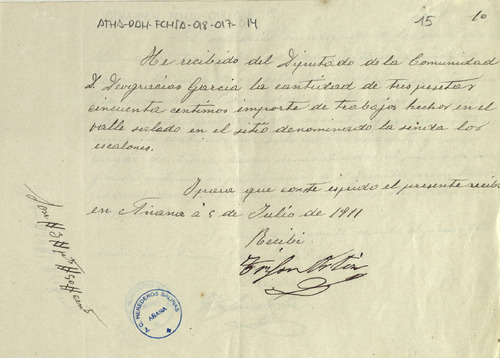 ATHA-DAH-FCHSA-018-017-14
15
10
He recibido del Diputado de la Comunidad
D. Deogracias Garcia la cantidad de tres pesetas
cincuenta centimos importe de trabajos hechos en el
valle salado en el sitio denominado la senda los
escalones.
Y para que conste espido el presente recibo
en Añana á 5 de Julio de 1911
Recibi
Son
A.C. HEREDEROS SALINAS
AÑANA